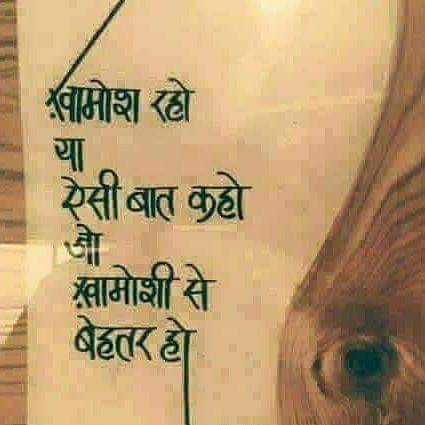 ख़ामोश रहो
या
ऐसी बात कहो
जो
ख़ामोशी से
बेहतर हो